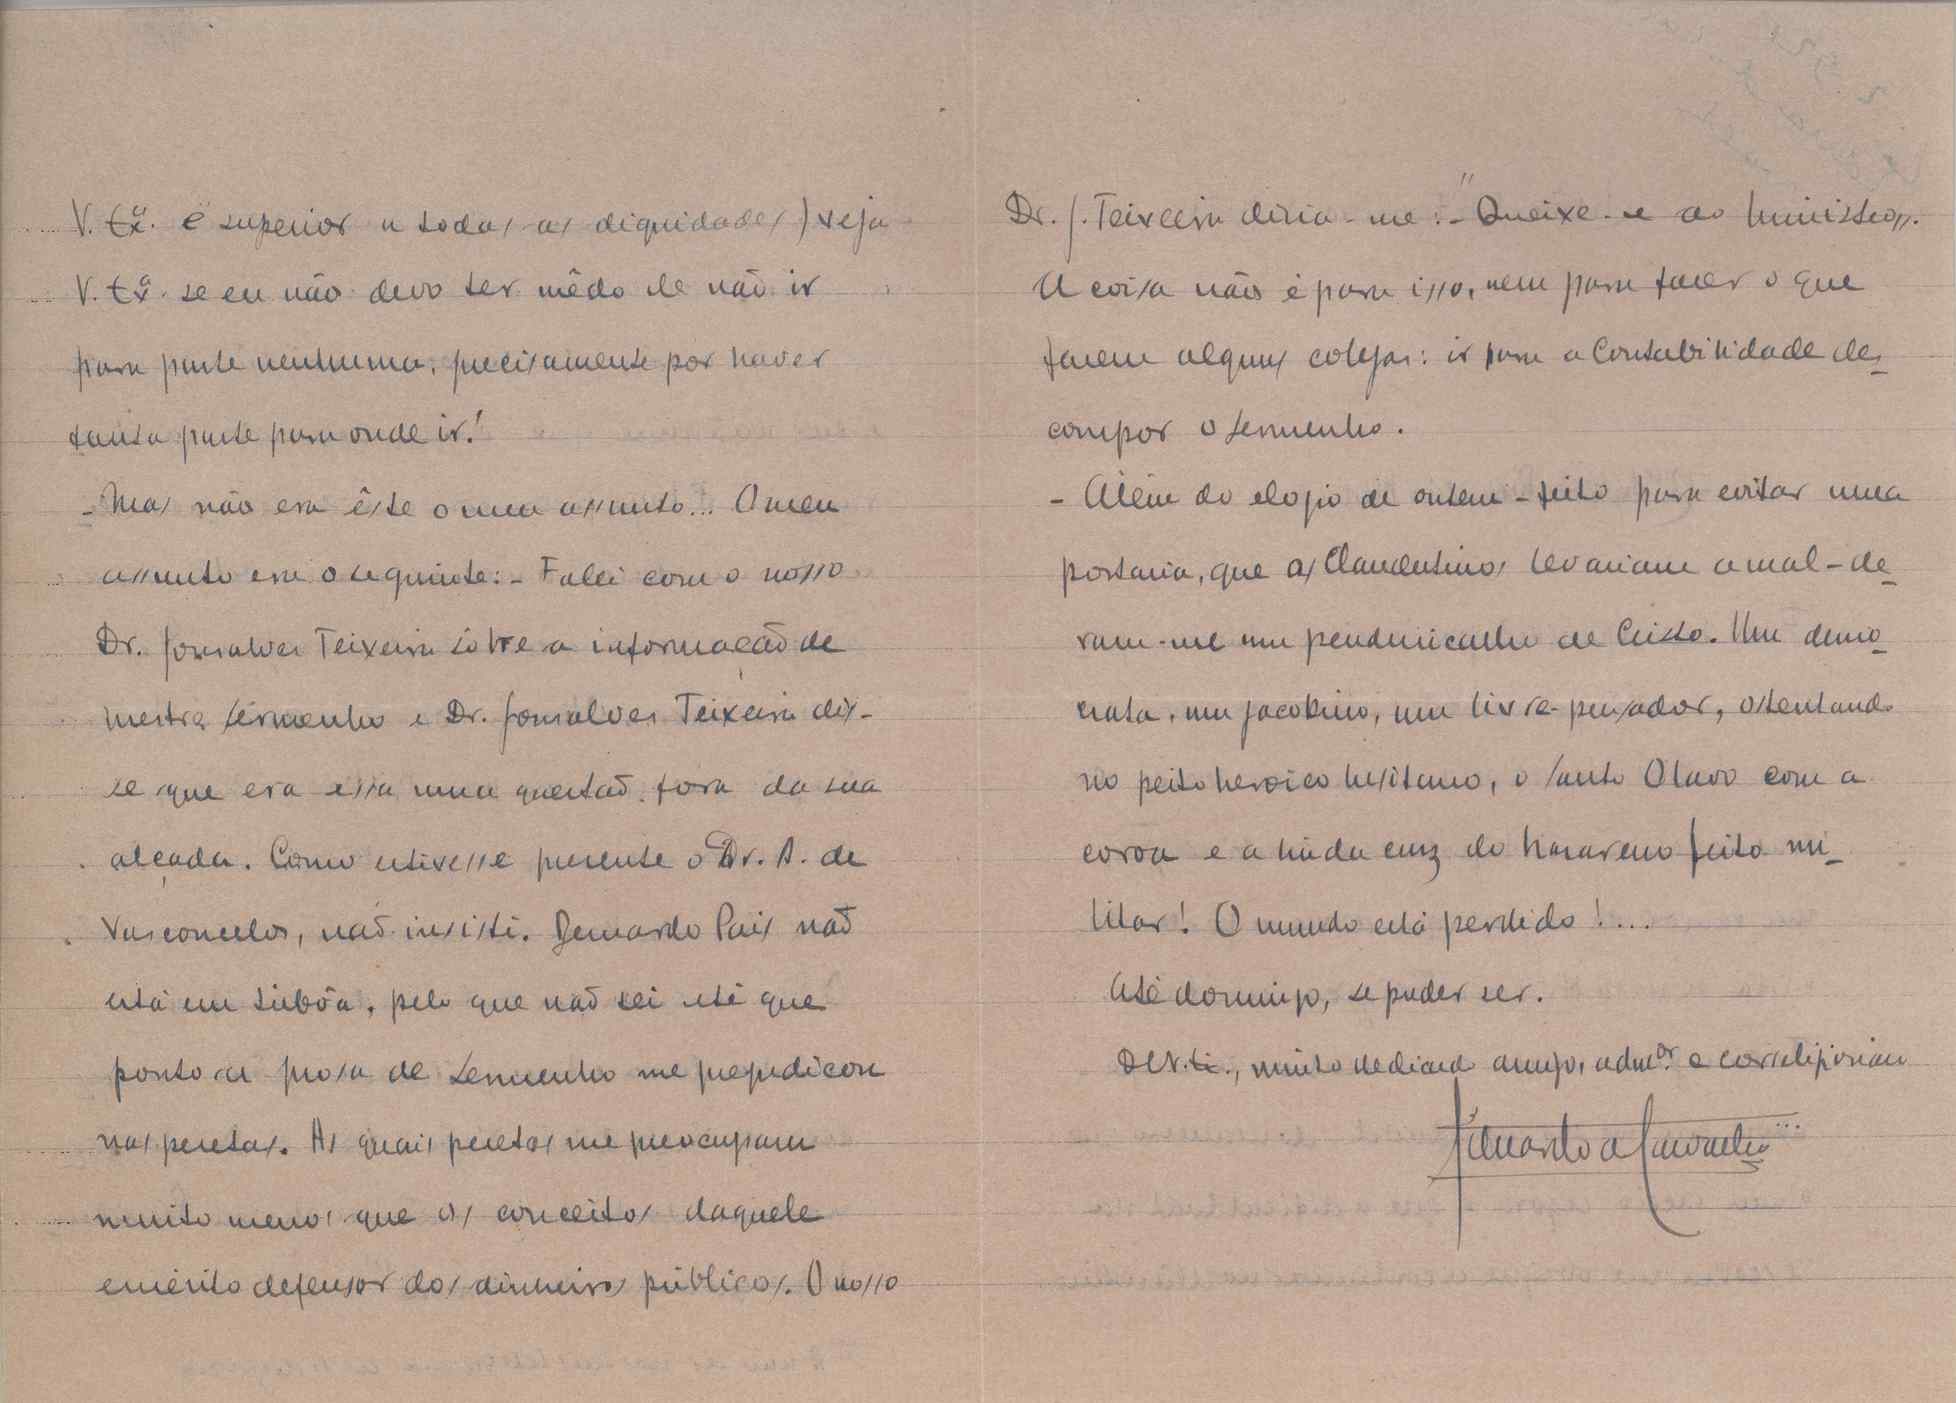 V. Exª. é superior a todas as dignidades) veja
V. Exª. se eu não devo ter mêdo de não ir
para parte nenhuma, precisamente por haver
tanta parte para onde ir!
- Mas não era êste o meu assunto... O meu
assunto era o seguinte: - Falei com o nosso
Dr. Gonsalves Teixeira sôbre a informação de
mestre Sermenho e Dr. Gonsalves Teixeira dis-
se que era essa uma questão fora da sua
alçada. Como estivesse presente o Dr. A. de
Vasconcelos, não insisti. Bernardo Pais não
está em Lisbôa, pelo que não sei até que
ponto a prosa de Sermenho me prejudicou
nas pesetas. As quais pesetas me preocupam
muito menos que os conceitos daquele
emérito defensor dos dinheiros públicos. O nosso
Dr. G. Teixeira diria-me: - "Queixe-se ao Ministro".
A coisa não é para isso, nem para fazer o que
fazem alguns colegas: ir para a Contabilidade des-
compor o Sermenho.
- Além do elogio de ontem - feito para evitar uma
portaria, que os Clandestinos levariam a mal - de-
ram-me um penduricalho de Cristo. Um demo-
crata, um jacobino, um livre-pensador, ostentando
no peito heroico lusitano, o Santo Olavo com a
coroa e a linda cruz do Nazareno feito mi-
litar! O mundo está perdido!...
Até domingo, se puder ser.
De V. Ex., muito dedicado amigo, admor. e correligionario
Eduardo a Carvalho